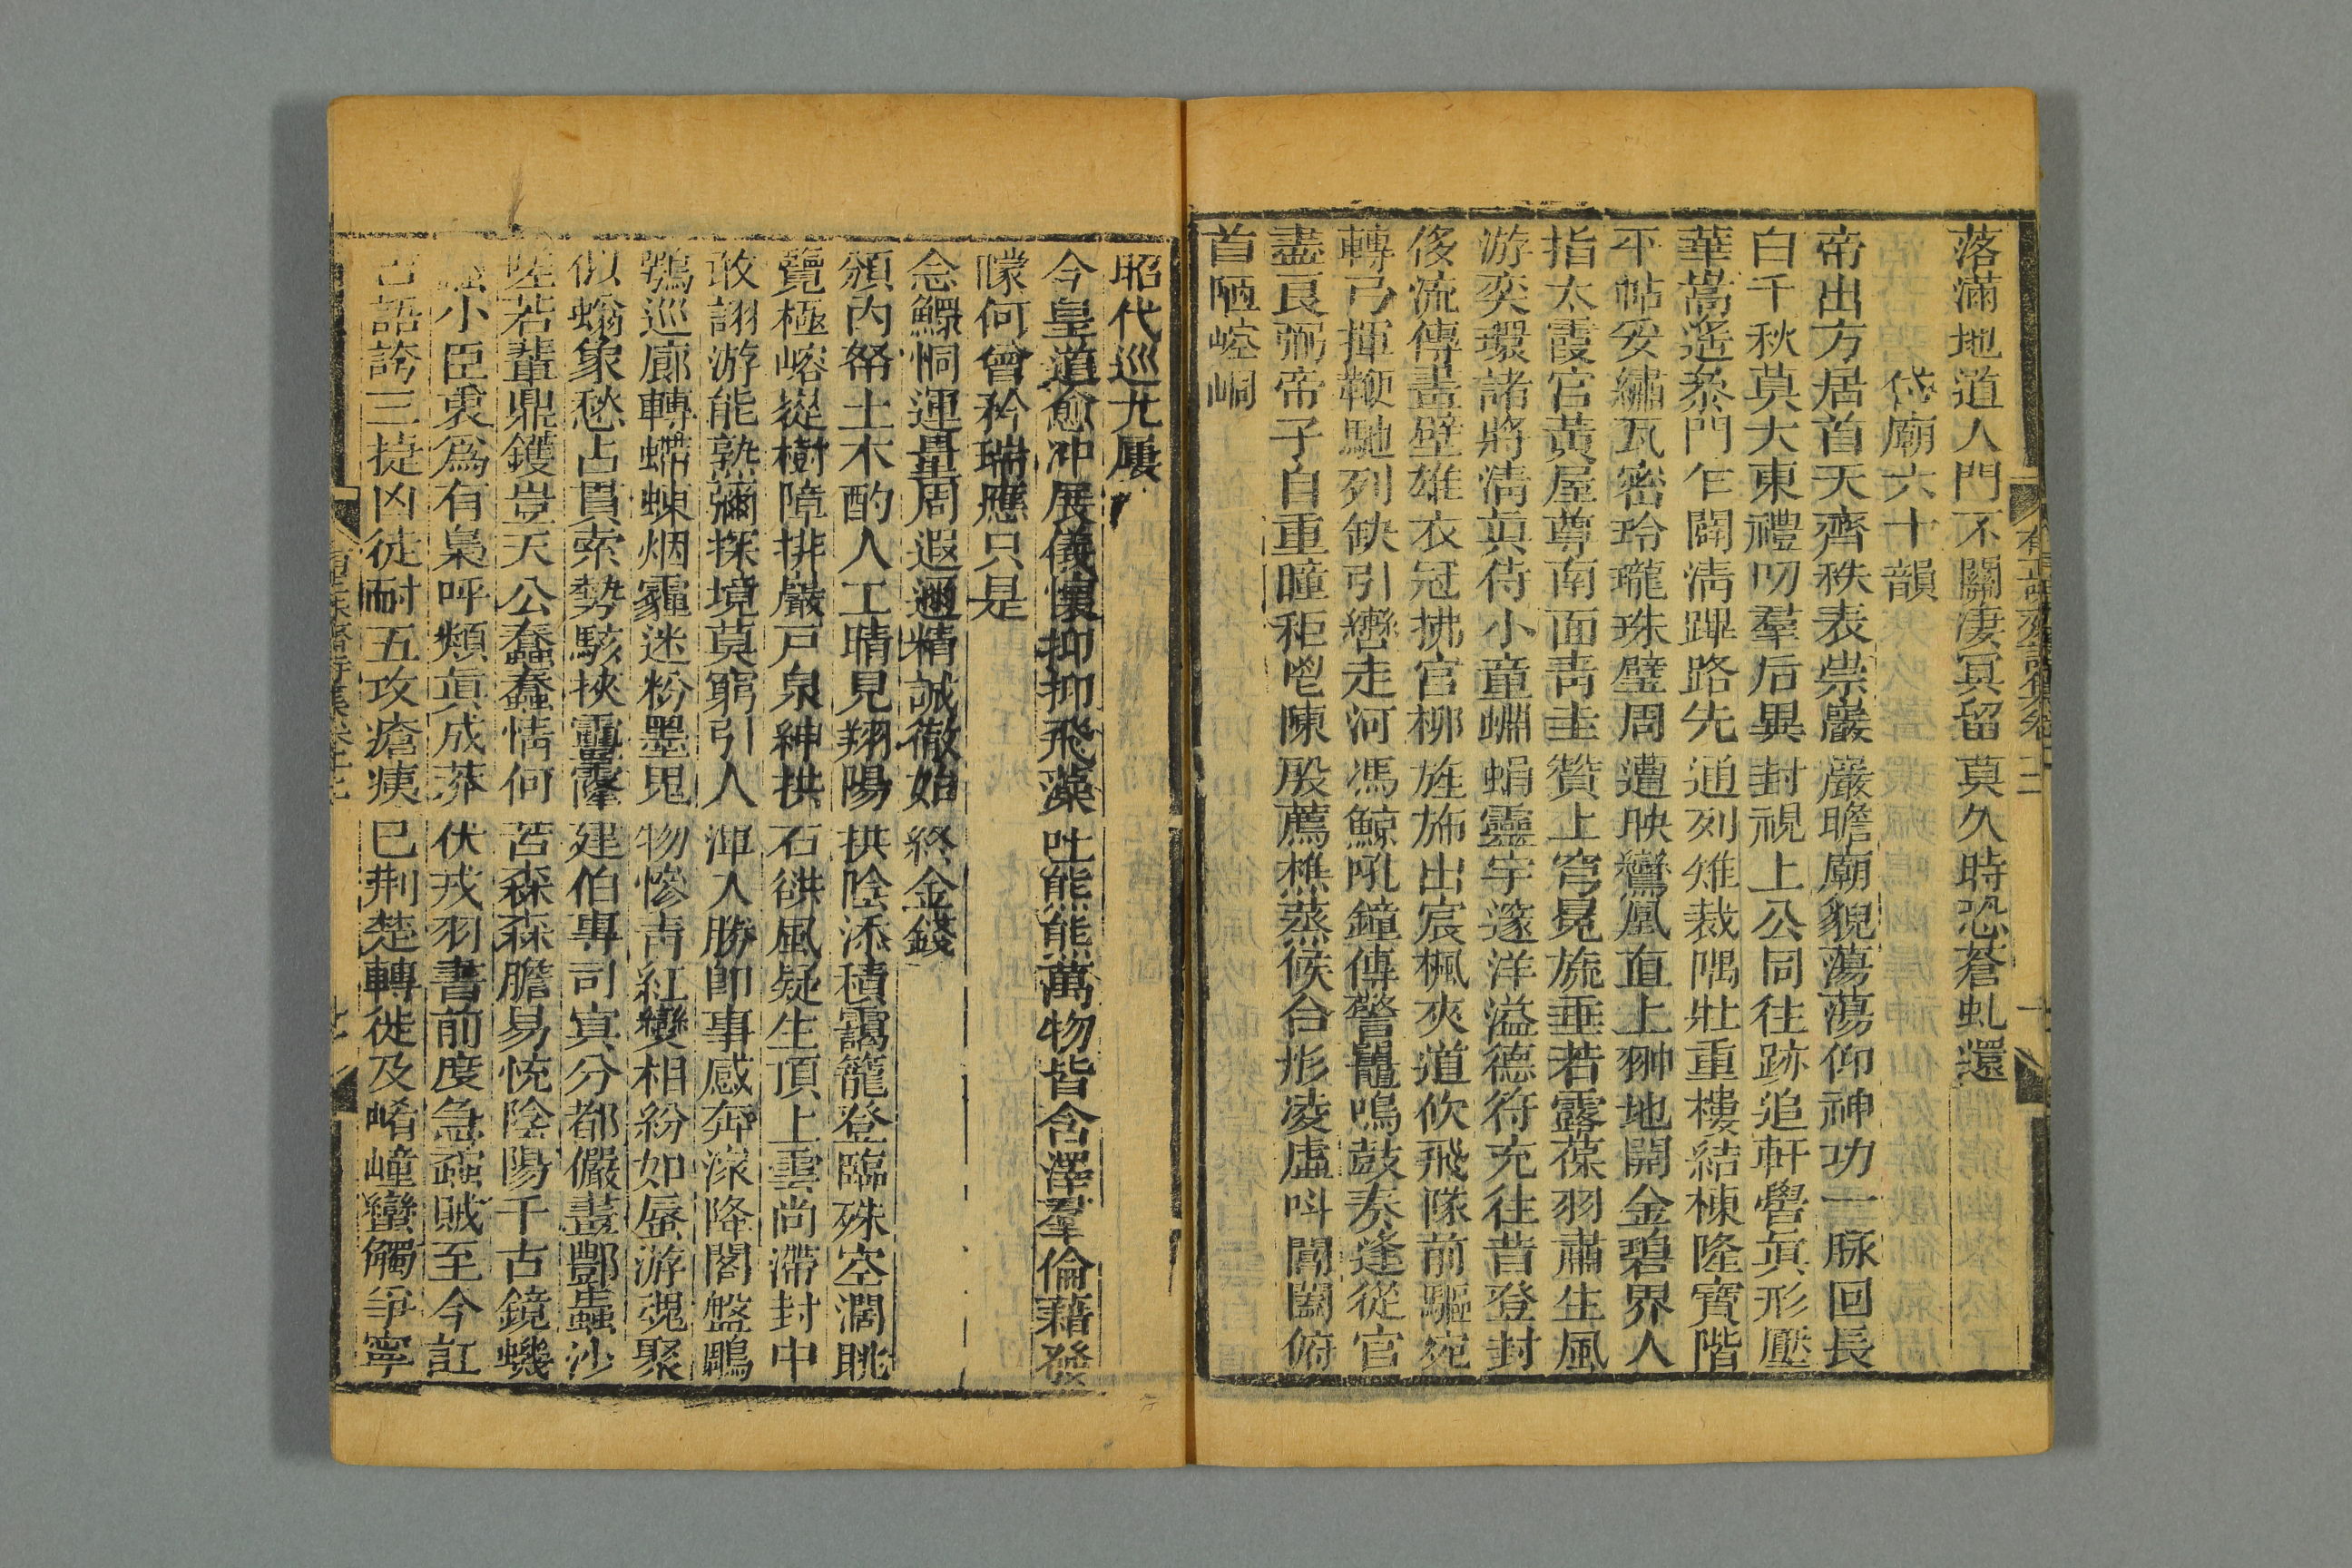 落滿地道人門不關淒冥留莫久時恐蒼虬還
岱廟六十韻
帝出方居首天齊秩表崇巖巖瞻廟貌蕩蕩仰神功一脉回長
白千秋莫大東禮叨羣后異封視上公同往跡追軒嚳眞形壓
華嵩遙叅門乍闢清蹕路先通列雉裁隅壯重樓結棟隆寶階
平帖妥繡瓦密玲瓏珠璧周遭映鸞凰直上翀地開金碧界人
指太霞宮黃屋尊南面青圭贊上穹冕旒垂若露葆羽肅生風
游奕環諸將清眞侍小童嬋娟靈宇邃洋溢德符充往昔登封
後流傳畫壁雄衣冠拂官柳旌斾出宸楓夾道佽飛隊前驅宛
轉弓揮鞭馳列缺引轡走河馮鯨吼鐘傳警鼉鳴鼓奏逢從官
盡良弼帝子自重瞳秬鬯陳殷薦樵蒸候合彤凌虛呌閶闔俯
首陋崆峒
昭代巡尤屢
今皇道愈冲展儀懷抑抑飛藻吐熊熊萬物皆含澤羣倫藉發
矇何曾矜瑞應只是
念鰥恫運量周遐邇精誠徹始終金錢
頒內帑土木酌人工晴見翔陽拱陰添積靄籠登臨殊空濶眺
覽極嵱嵷樹障排巖戸泉紳拱石谼風疑生頂上雲尚滯封中
敢詡游能熟彌探境莫窮引人漸入勝卽事感奔潨降閣盤鵰
鶚巡廊轉螮蝀烟霾迷粉墨鬼物慘青紅變相紛如蜃游魂聚
似螉象愁占貫索勢駭挾靁霳建伯專司寘分都儼蓋酆蟲沙
嗟若輩鼎鑊豈天公蠢蠢情何苦森森膽易忱陰陽千古鏡蟣
小臣衷爲有梟呼類眞成莽伏戎羽書前度急蟊賊至今訌
吉語誇三捷凶徒耐五攻瘡痍巳荆楚轉徙及崤嶂蠻觸爭寧